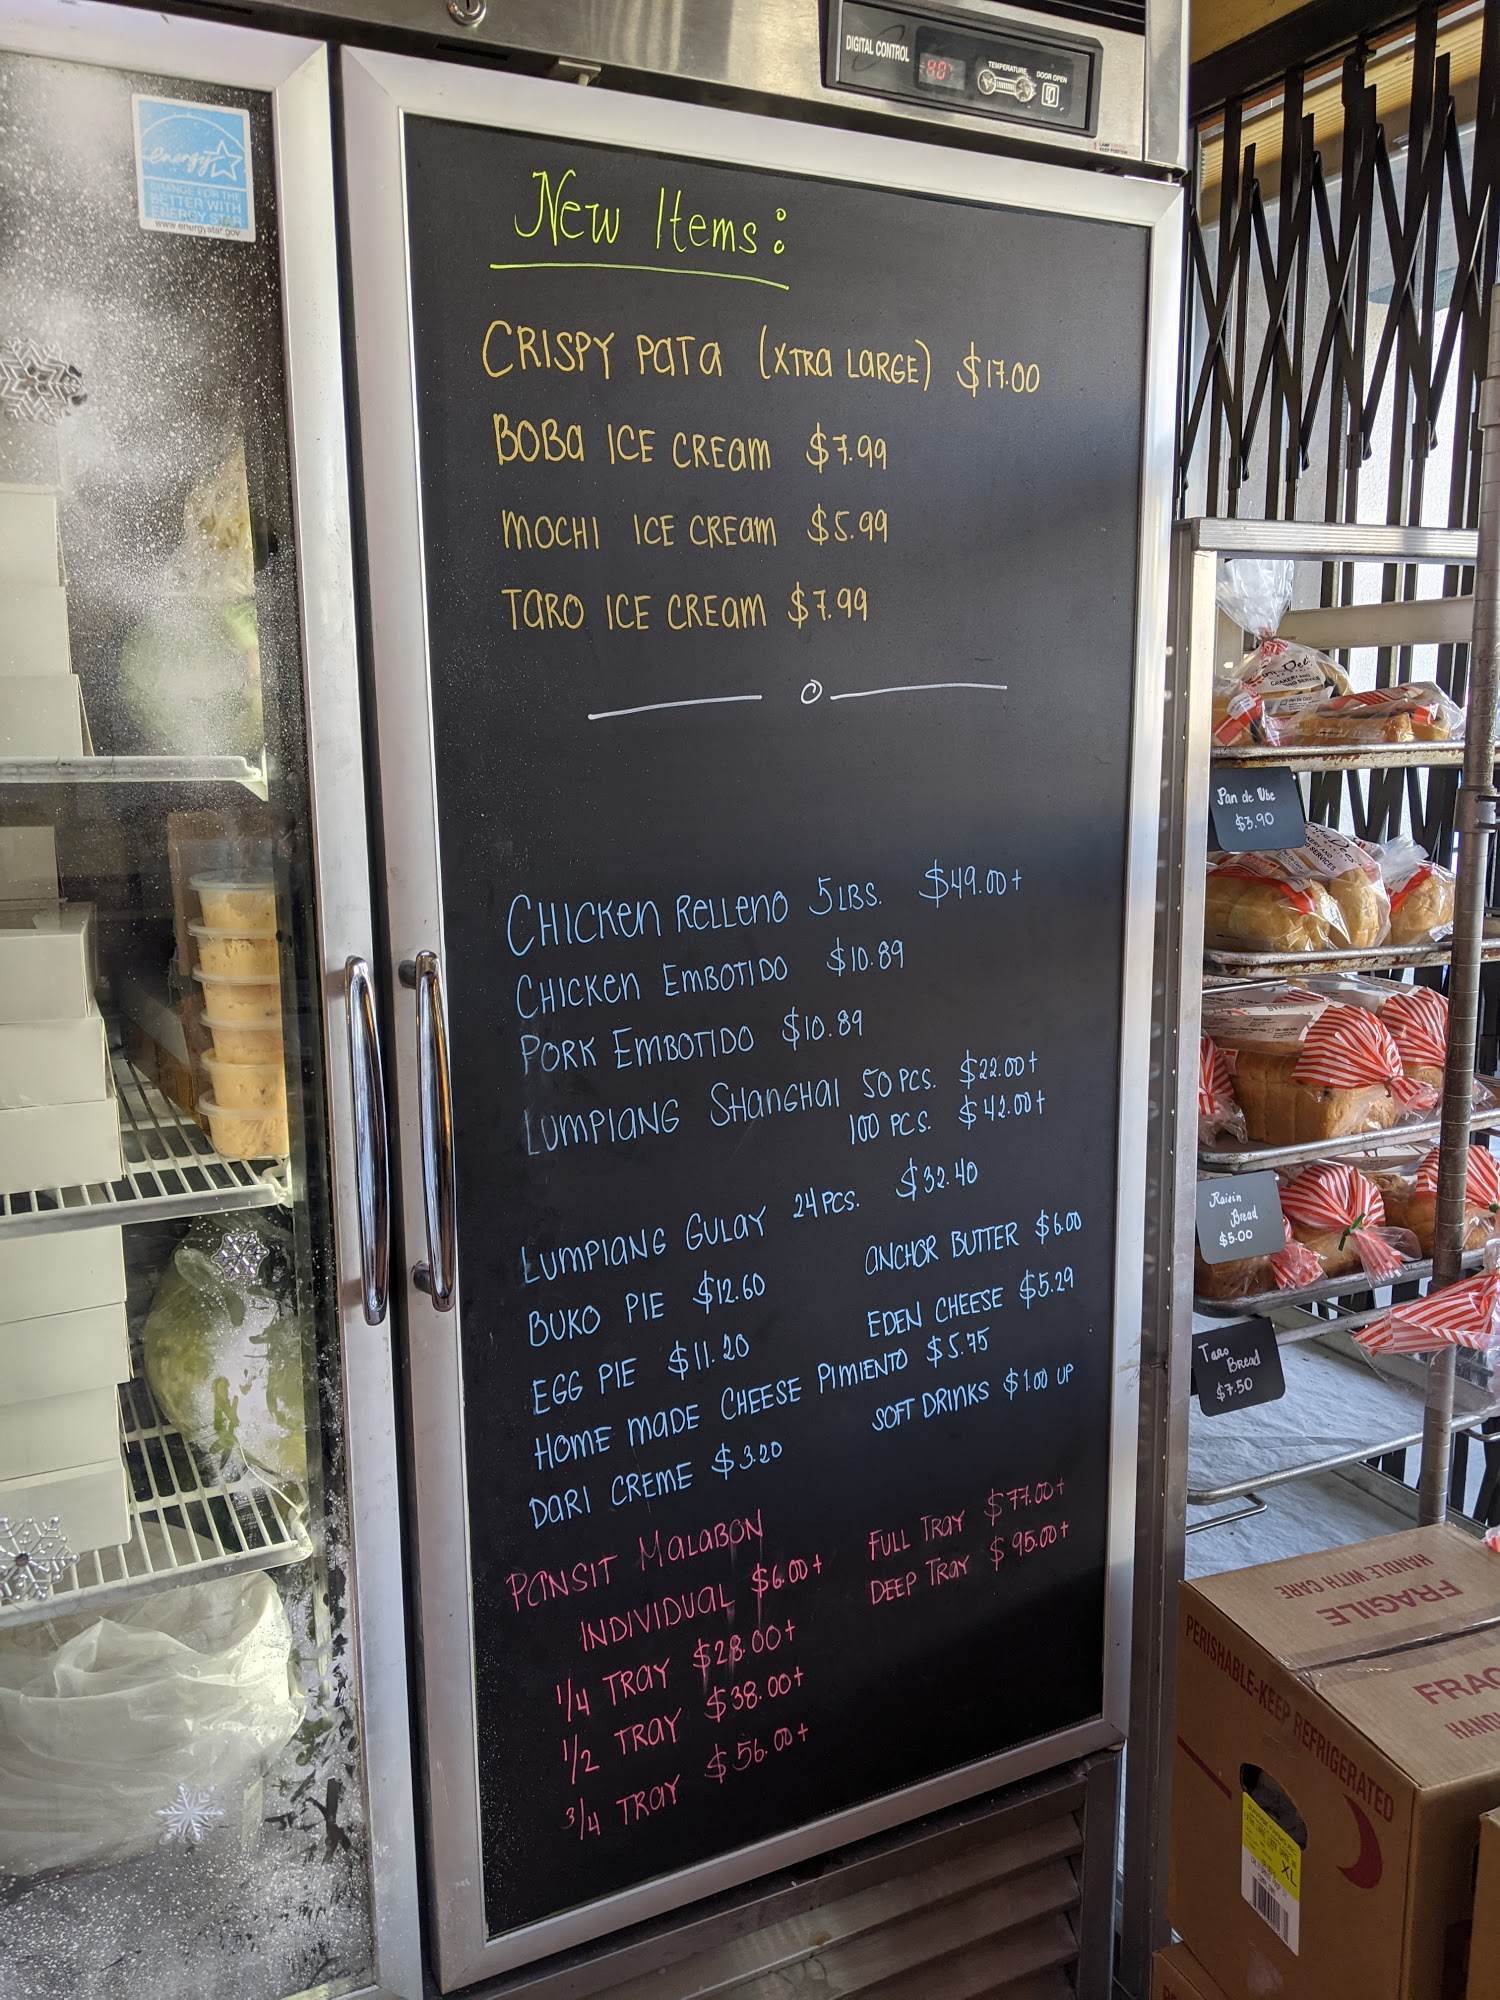 DIGITAL CONTROL
TEMPERATURE
DOOR OPEN
energy
CHANGE FOR THE
BETTER WITH
ENERGY STAR
www.energystar.gov
New Items:
CRISPY PATA (XTRA LARGE) $17.00
BOBA ICE CREAM $7.99
MOCHI ICE CREAM $5.99
TARO ICE CREAM $7.99
CHICKEN RELLENO 5 LBS. $49.00+
CHICKEN EMBOTIDO $10.89
PORK EMBOTIDO $10.89
LUMPIANG SHANGHAI 50 PCS. $22.00+
100 PCS. $42.00+
LUMPIANG GULAY 24 PCS. $32.40
BUKO PIE $12.60
ANCHOR BUTTER $6.00
EGG PIE $11.20
EDEN CHEESE $5.29
HOME MADE CHEESE PIMIENTO $5.75
DARI CREME $3.20
SOFT DRINKS $1.00 UP
PANSIT MALABON
INDIVIDUAL $6.00+
1/4 TRAY $28.00+
1/2 TRAY $38.00+
3/4 TRAY $56.00+
FULL TRAY $77.00+
DEEP TRAY $95.00+
Pan de Ube
$3.90
Raisin
Bread
$5.00
Taro
Bread
$7.50
HANDLE WITH CARE
FRAGILE
PERISHABLE-KEEP REFRIGERATED
XL